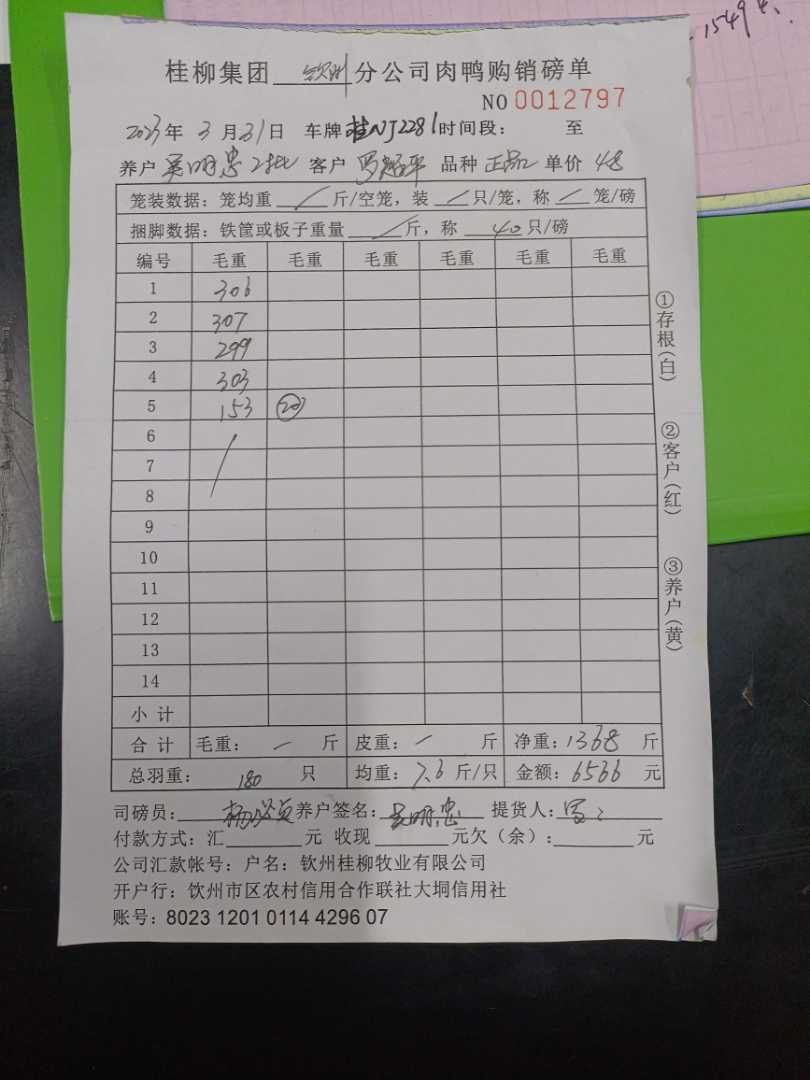 1549
桂柳集团 钦州 分公司肉鸭购销磅单
NO 0012797
2023年 3月31日 车牌 桂NJ2281 时间段: 至
养户 吴明忠 2批 客户 罗超平 品种 正品 单价 4.8
笼装数据: 笼均重 / 斤/空笼, 装 / 只/笼, 称 / 笼/磅
捆脚数据: 铁筐或板子重量 / 斤, 称 40 只/磅
编号 毛重 毛重 毛重 毛重 毛重 毛重
1 306
2 307
3 299
4 303
5 153 20
6
7
8
9
10
11
12
13
14
小计
合计 毛重: — 斤 皮重: — 斤 净重: 1368 斤
总羽重: 180 只 均重: 7.6 斤/只 金额: 6566 元
司磅员: 养户签名: 吴明忠 提货人: 罗
付款方式: 汇 元 收现 元欠(余): 元
公司汇款帐号: 户名: 钦州桂柳牧业有限公司
开户行: 饮州市区农村信用合作联社大垌信用社
账号: 8023 1201 0114 4296 07
①存根(白)
②客户(红)
③养户(黄)